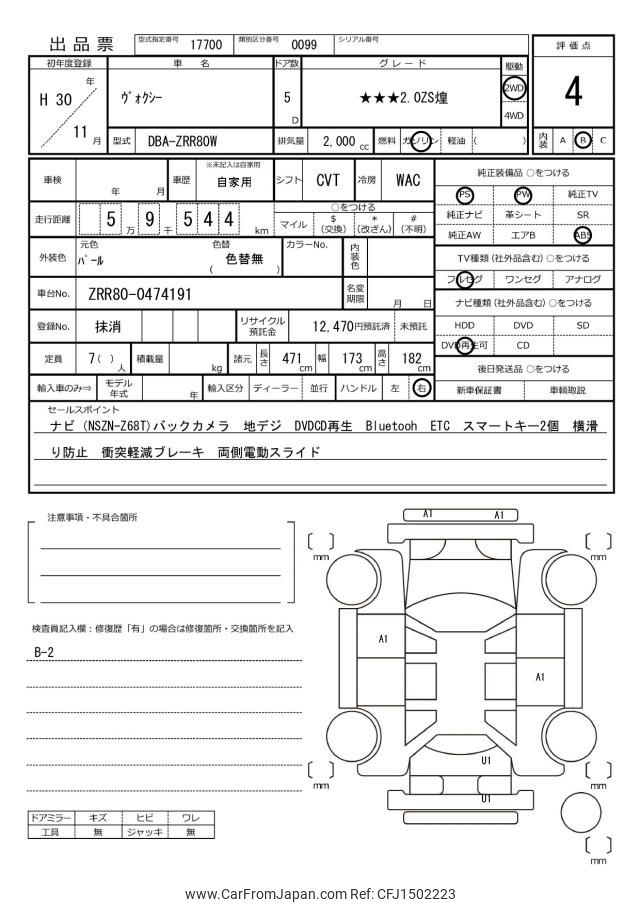 出品票 型式指定番号 17700 類別区分番号 0099 シリアル番号
評価点
4
内装 A B C
初年度登録 車名 ドア数 グレード 駆動
H 30 年 11 月
ヴォクシー 5 D ★★★2.0ZS煌 2WD
4WD
型式 DBA-ZRR80W 排気量 2,000 cc 燃料 ガソリン 軽油 ( )
車検 年 月 車歴 ※未記入は自家用 自家用 シフト CVT 冷房 WAC
走行距離 5 万 9 千 5 4 4 km
○をつける
マイル $ (交換) * (改ざん) # (不明)
外装色 元色 パール 色替 ( 色替無 ) カラーNo. 内装色
車台No. ZRR80-0474191 名変期限 月 日
登録No. 抹消 リサイクル預託金 12,470円預託済 未預託
定員 7( ) 人 積載量 kg 諸元 長さ 471 cm 幅 173 cm 高さ 182 cm
輸入車のみ⇒ モデル年式 年 輸入区分 ディーラー 並行 ハンドル 左 右
純正装備品 ○をつける
PS PW 純正TV
純正ナビ 革シート SR
純正AW エアB ABS
TV種類(社外品含む) ○をつける
フルセグ ワンセグ アナログ
ナビ種類(社外品含む) ○をつける
HDD DVD SD
DVD再生可 CD
後日発送品 ○をつける
新車保証書 車輌取説
セールスポイント
ナビ (NSZN-Z68T)バックカメラ 地デジ DVDCD再生 Bluetooh ETC スマートキー2個 横滑
り防止 衝突軽減ブレーキ 両側電動スライド
注意事項・不具合箇所
検査員記入欄：修復歴「有」の場合は修復箇所・交換箇所を記入
B-2
A1 A1
mm mm
A1
A1
U1
U1
mm mm
mm
ドアミラー キズ ヒビ ワレ
工具 無 ジャッキ 無
www.CarFromJapan.com Ref: CFJ1502223